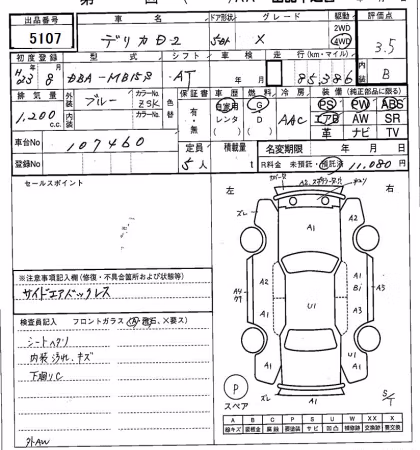 出品番号 車名 ドア形状 グレード 駆動 評価点
5107 デリカD-2 5D X 2WD 4WD 3.5
初度登録 型式 シフト 車検 走行(km・マイル) 内装
H23年8月 DBA-MB15S AT 年 月 85,386 B
排気量 外装 ブルー カラーNo. ZSK 色替 保証書 有・無 車歴 自家用 レンタ 燃料 G D 冷房 AAC 装備(純正部品に限る)
1,200 c.c. 内装 カラーNo. PS PW ABS
エアB AW SR
革 ナビ TV
車台No 107460 定員 5人 積載量 t 名変期限 年 月 日
登録No R料金 未預託・預託済 11,080円
セールスポイント
左 右
※注意事項記入欄(修復・不具合箇所および状態等)
サイドエアバックレス
検査員記入 フロントガラス
シートヘタリ
内装汚れ、キズ
下廻りC
外AW
ズレ
A1
A2 A1
A4 U1 A1 Bi A3
A2 A1 A2
A1
P
スペア ズレ A1 S/T
A B C P S U W X XX
線キズ 要板金 腐蝕 要塗装 サビ 凹凸 補修跡 交換跡 要交換